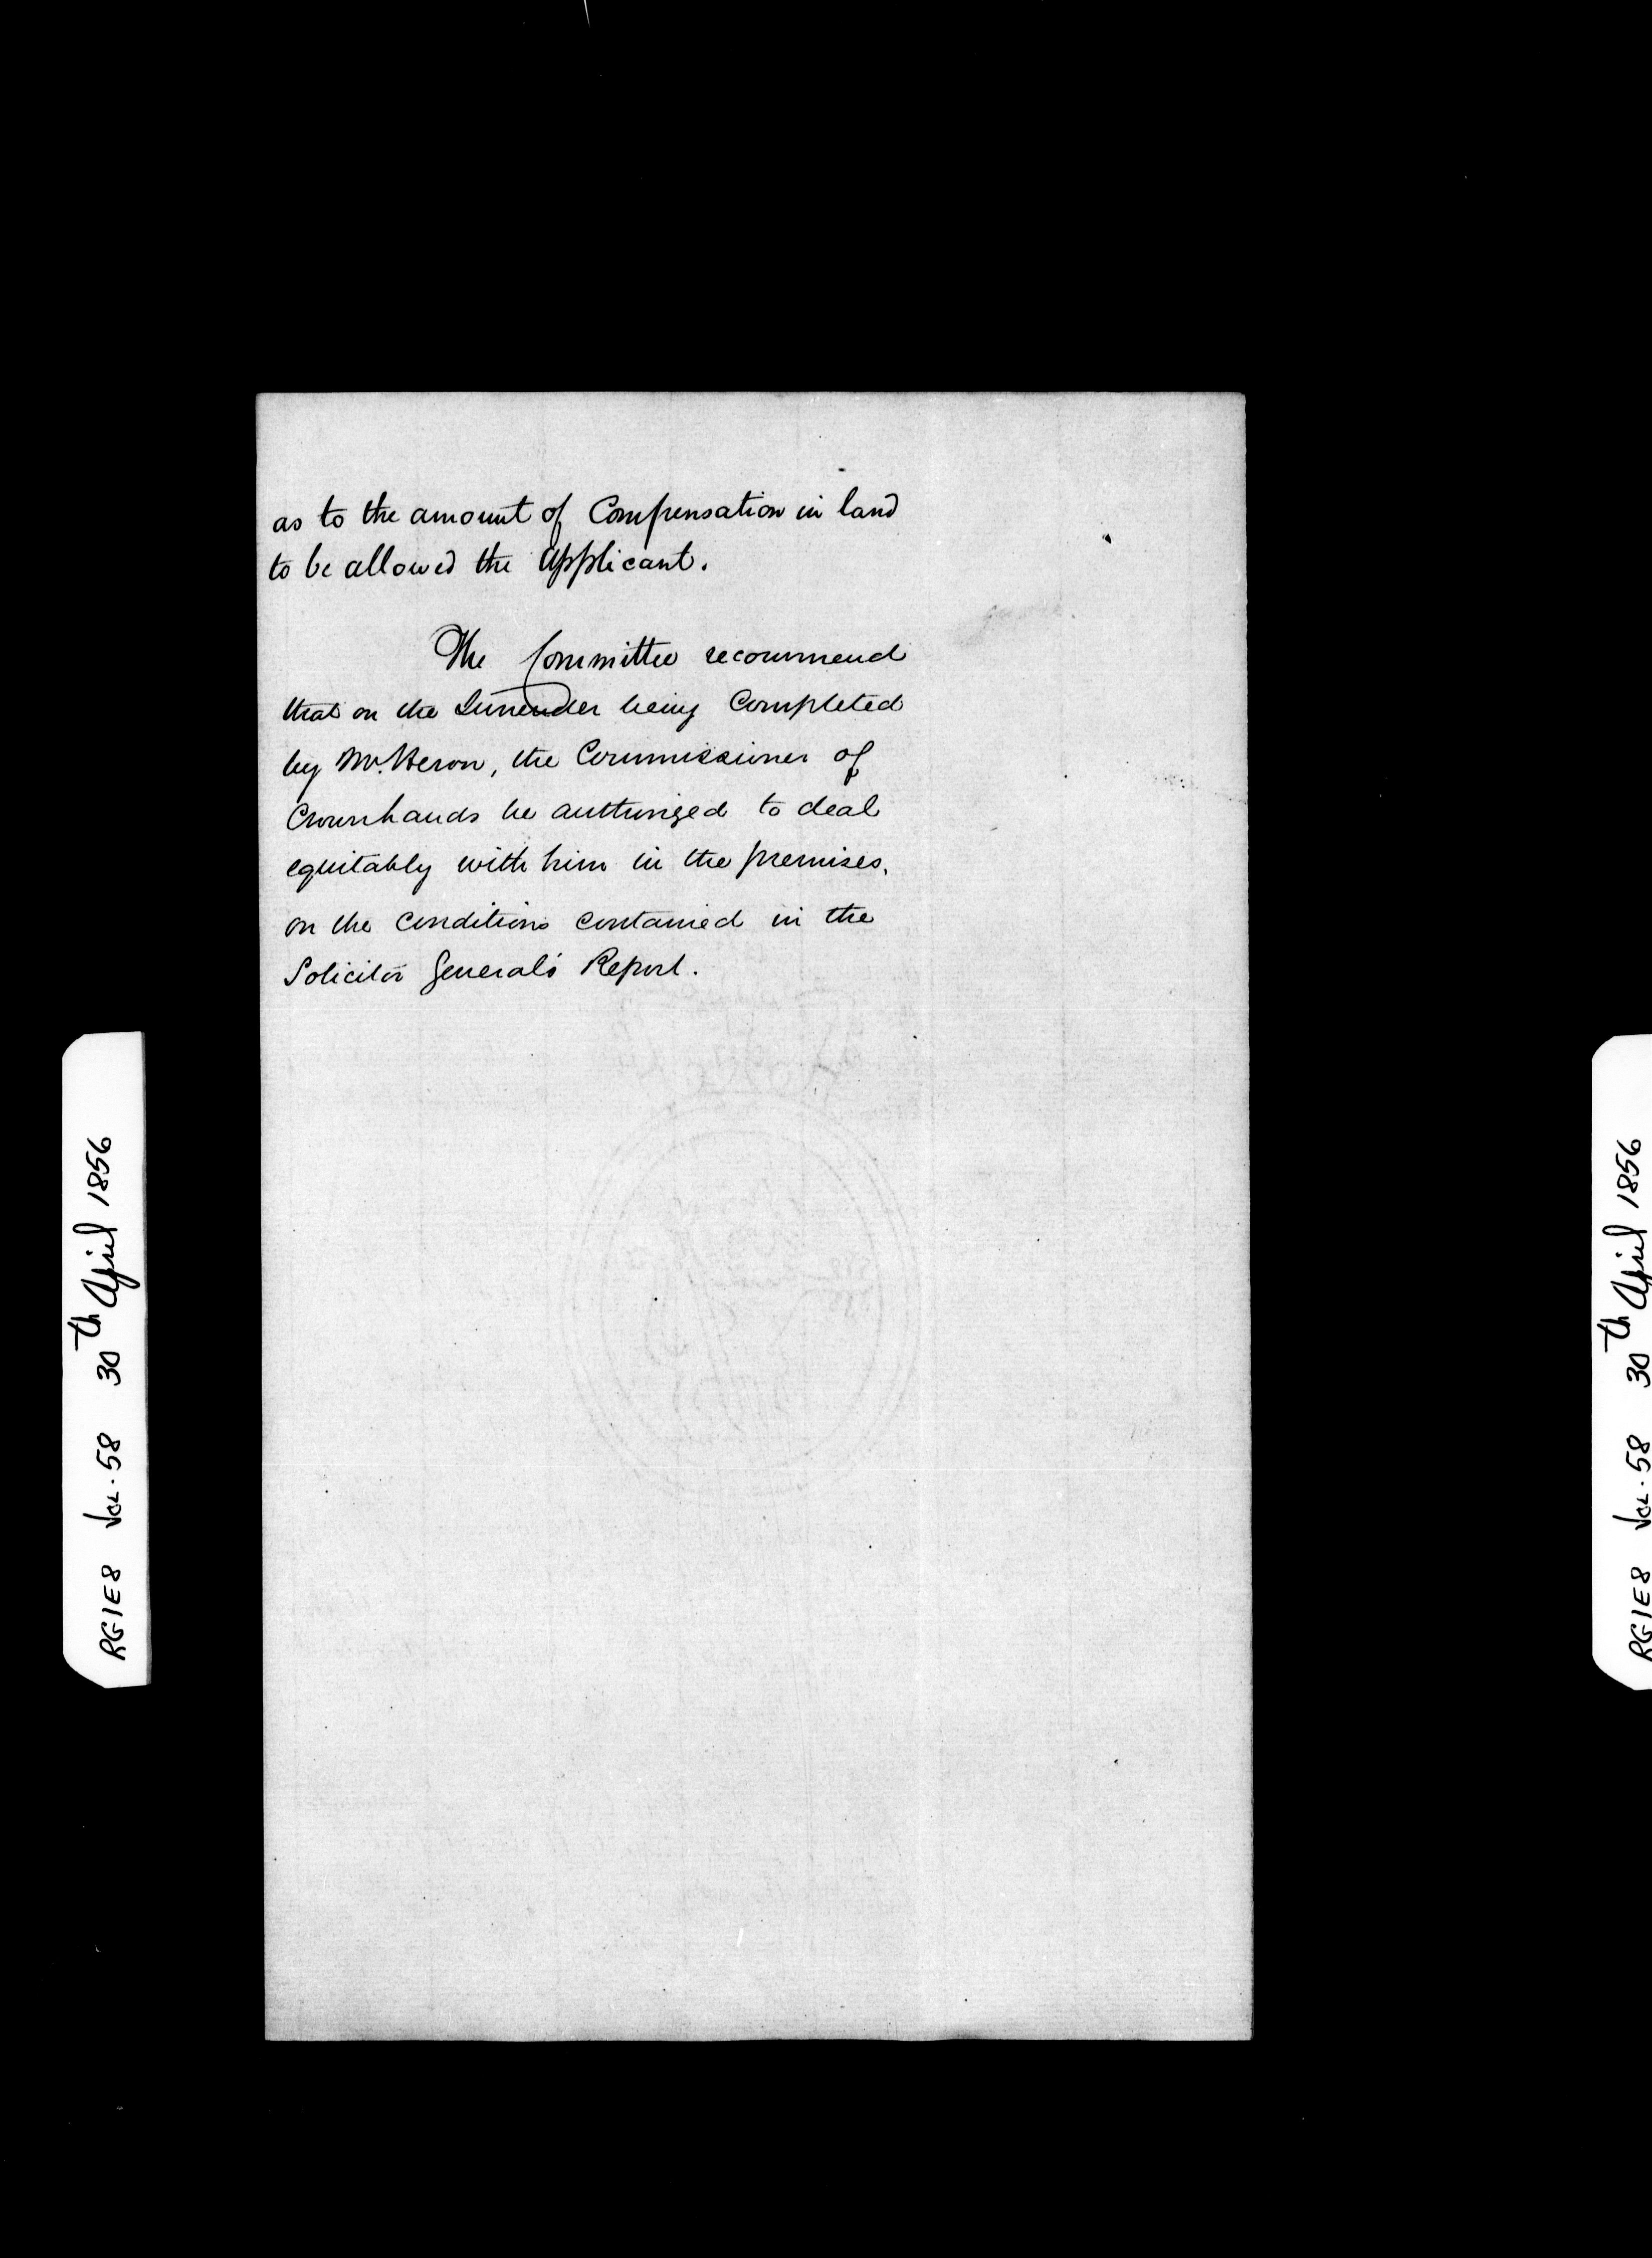 as to the amount of Compensation in land
to be allowed the Applicant.
The Committee recommend
that on the Surrender being Completed
by Mr. Heron, the Commissioner of
Crown Lands be authorized to deal
equitably with him in the premises,
on the conditions contained in the
Solicitor General's Report.
RG1E8 Vol. 58 30th April 1856
RG1E8 Vol. 58 30th April 1856